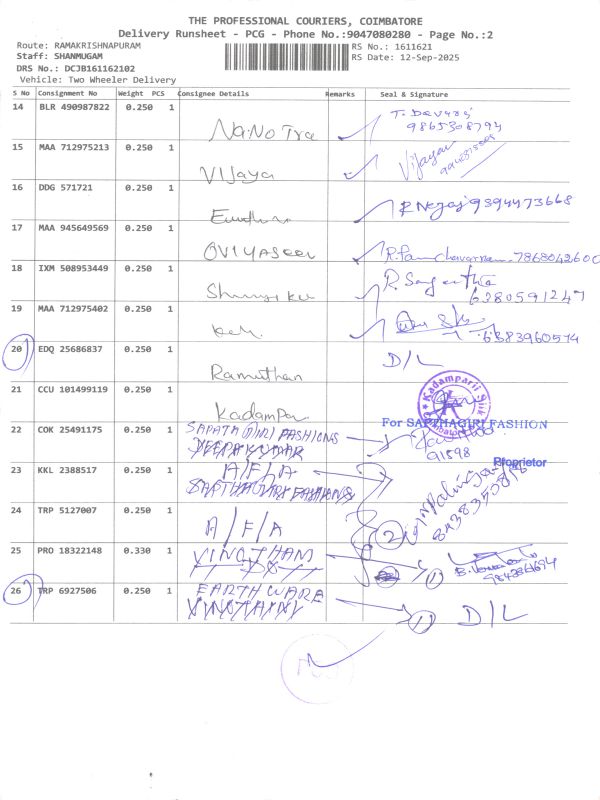 THE PROFESSIONAL COURIERS, COIMBATORE
Delivery Runsheet - PCG - Phone No.:9047080280 - Page No.:2
Route: RAMAKRISHNAPURAM RS No.: 1611621
Staff: SHANMUGAM RS Date: 12-Sep-2025
DRS No.: DCJB161162102
Vehicle: Two Wheeler Delivery
S No Consignment No Weight PCS Consignee Details Remarks Seal & Signature
14 BLR 490987822 0.250 1 T. Devaraj
Na.No Tra 9865308794
15 MAA 712975213 0.250 1
Vijaya Vijayan
16 DDG 571721 0.250 1
R Negaj 9394473668
17 MAA 945649569 0.250 1
OVIYASEEV 7868042600
18 IXM 508953449 0.250 1 R. Sangeetha
6280591247
19 MAA 712975402 0.250 1
6383960574
20 EDQ 25686837 0.250 1 D/L
Ramuthan
21 CCU 101499119 0.250 1 Kadamparii Silk
Kadampa
22 COK 25491175 0.250 1 SAPATA GIRI FASHIONS For SAPTHAGIRI FASHION
DEEPAKUMAR 91598
Proprietor
23 KKL 2388517 0.250 1 A/F/A
SAPTHAGIRI FASHIONS
8438350818
24 TRP 5127007 0.250 1
A/F/A 2
25 PRO 18322148 0.330 1 VINGTHAM
1)
26 TRP 6927506 0.250 1 EARTH WARE
1) D/L